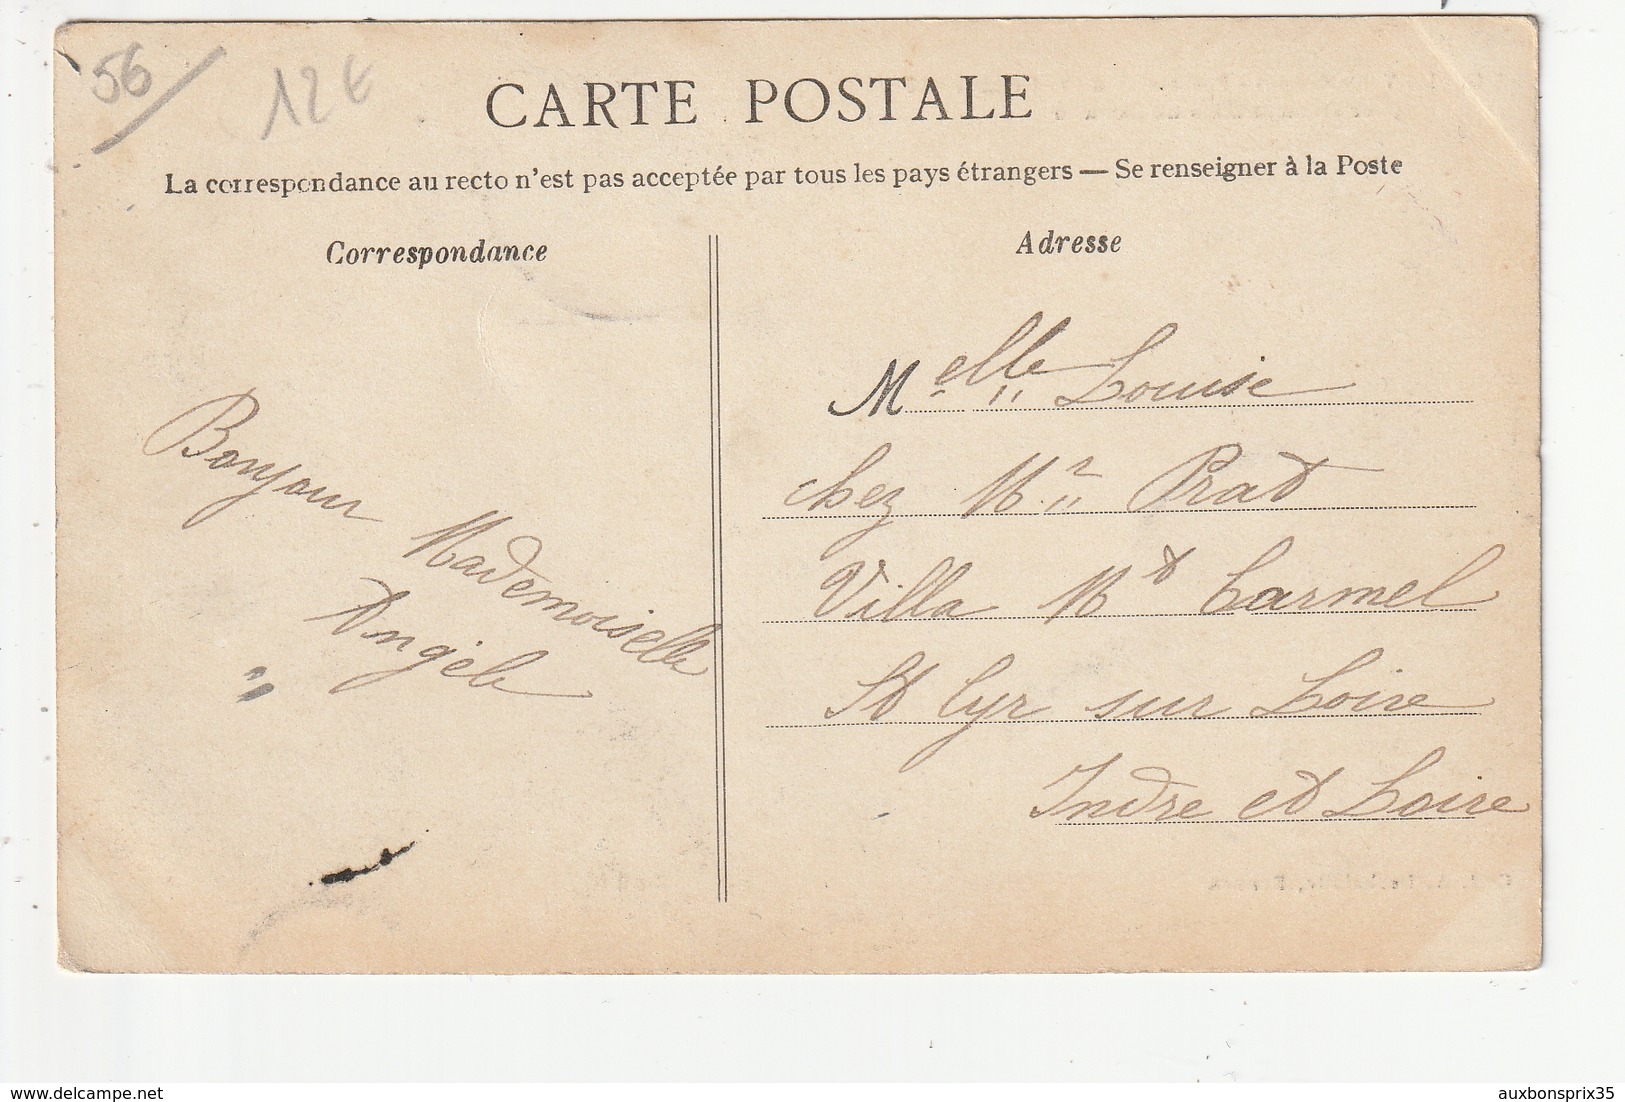 56/ 12 €
CARTE POSTALE
La correspondance au recto n'est pas acceptée par tous les pays étrangers — Se renseigner à la Poste
Correspondance
Bonjour Mademoiselle
Angèle
Adresse
Melle Louise
chez Mr Prat
Villa Mt Carmel
St Cyr sur Loire
Indre et Loire
delcampe.net
auxbonsprix35